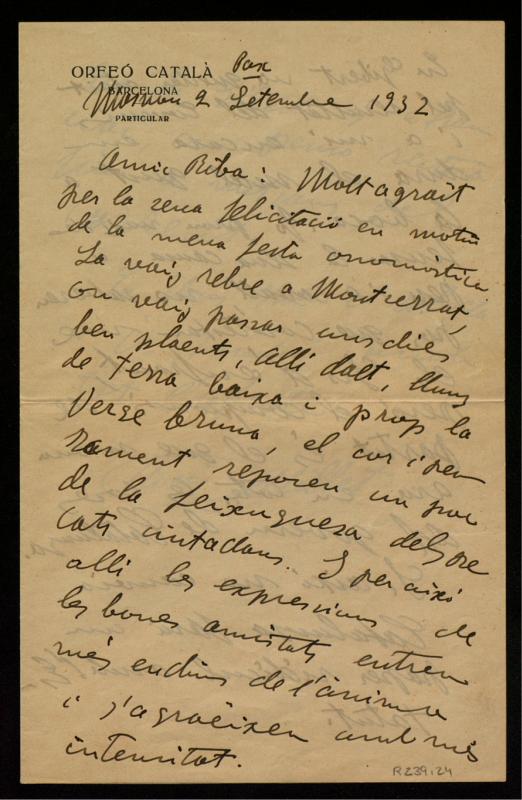 Pax
ORFEÓ CATALÀ
BARCELONA
2 Setembre 1932
PARTICULAR
Amic Riba: Molt agraït
per la seva felicitació en motiu
de la meva festa onomàstica.
La vaig rebre a Montserrat,
on vaig passar uns dies
ben plaents, allí dalt, lluny
de terra baixa i prop la
Verge bruna, el cor i pen
sament reposen un poc
de la feixuguesa dels pe
cats ciutadans. I per això
allí les expressions de
les bones amistats entren
més endins de l'ànima
i s'agraeixen amb més
intensitat.
R239.24